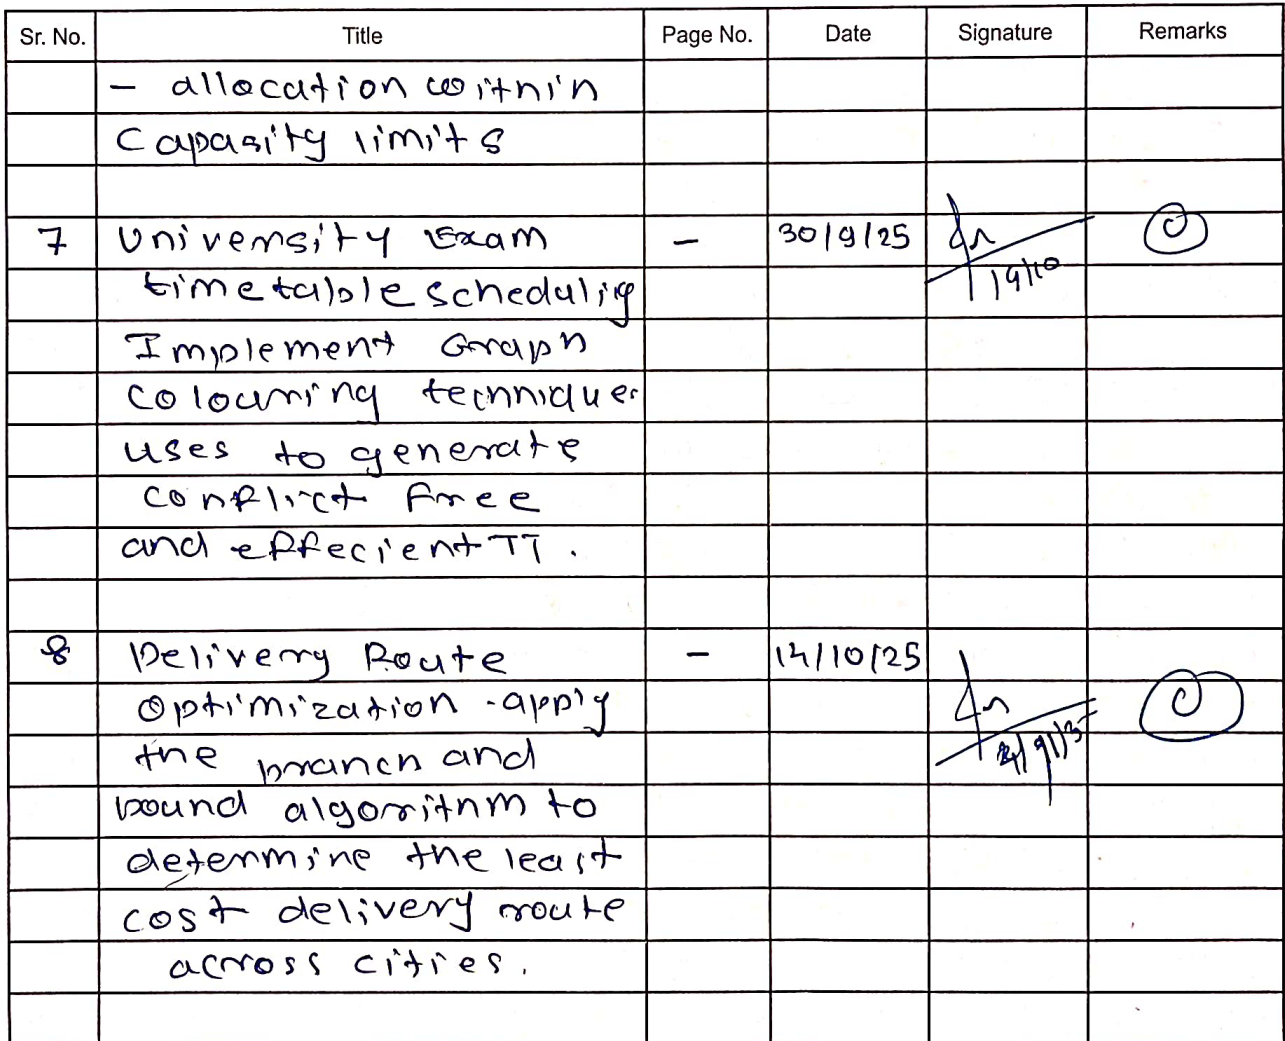 Sr. No. Title Page No. Date Signature Remarks
- allocation within
Capasity limits
7 University Exam - 30/9/25
timetable scheduling
Implement Graph
colouring techniques
uses to generate
conflict free
and effecient TT.
8 Delivery Route - 14/10/25
Optimization - apply
the branch and
bound algorithm to
determine the least
cost delivery route
across cities.